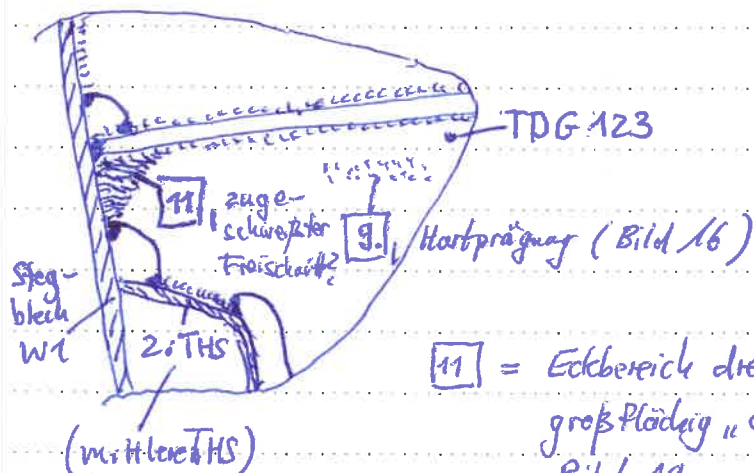 TDG 123
11
zuge-
schweißter
Freischnitt?
9.
Hartprägung (Bild 16)
Steg-
blech
W1
2. THS
(mittlere THS)
11 = Eckbereich
großflächig "